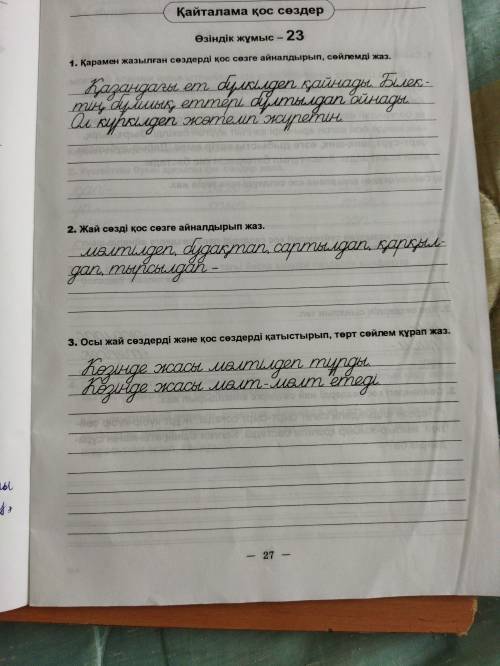 Қайталама қос сөздер
Өзіндік жұмыс – 23
1. Қарамен жазылған сөздерді қос сөзге айналдырып, сөйлемді жаз.
Қазандағы ет бүлкілдеп қайнады. Білек-
тің бұлшық еттері бұлтылдап ойнады.
Ол күркілдеп жөтеліп жүретін.
2. Жай сөзді қос сөзге айналдырып жаз.
мөлтілдеп, будақтап, сартылдап, қарқыл-
дап, тырсылдап –
3. Осы жай сөздерді және қос сөздерді қатыстырып, төрт сөйлем құрап жаз.
Көзінде жасы мөлтілдеп тұрды.
Көзінде жасы мөлт-мөлт етеді.
– 27 –